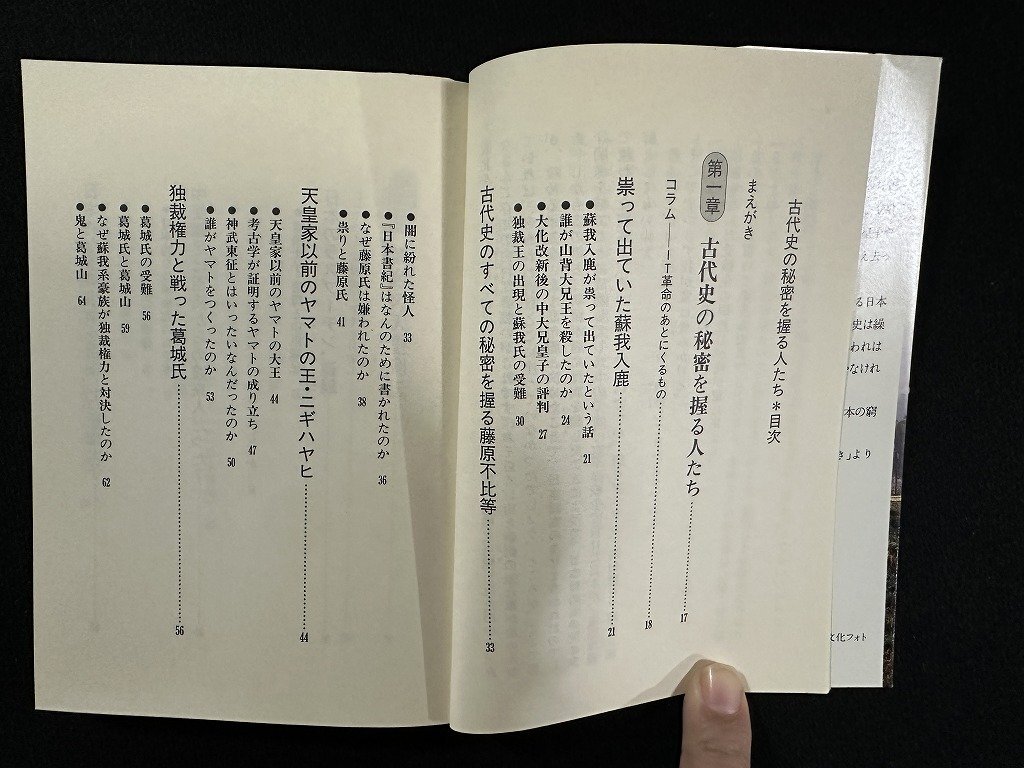 古代史の秘密を握る人たち＊目次
まえがき
第一章 古代史の秘密を握る人たち 17
コラム――IT革命のあとにくるもの 18
祟って出ていた蘇我入鹿 21
●蘇我入鹿が祟って出ていたという話 21
●誰が山背大兄王を殺したのか 24
●大化改新後の中大兄皇子の評判 27
●独裁王の出現と蘇我氏の受難 30
古代史のすべての秘密を握る藤原不比等 33
●闇に紛れた怪人 33
●『日本書紀』はなんのために書かれたのか 36
●なぜ藤原氏は嫌われたのか 38
●祟りと藤原氏 41
天皇家以前のヤマトの王・ニギハヤヒ 44
●天皇家以前のヤマトの大王 44
●考古学が証明するヤマトの成り立ち 47
●神武東征とはいったいなんだったのか 50
●誰がヤマトをつくったのか 53
独裁権力と戦った葛城氏 56
●葛城氏の受難 56
●葛城氏と葛城山 59
●なぜ蘇我系豪族が独裁権力と対決したのか 62
●鬼と葛城山 64
る日本
史は繰
われは
なけれ
本の窮
き」より
文化フォト